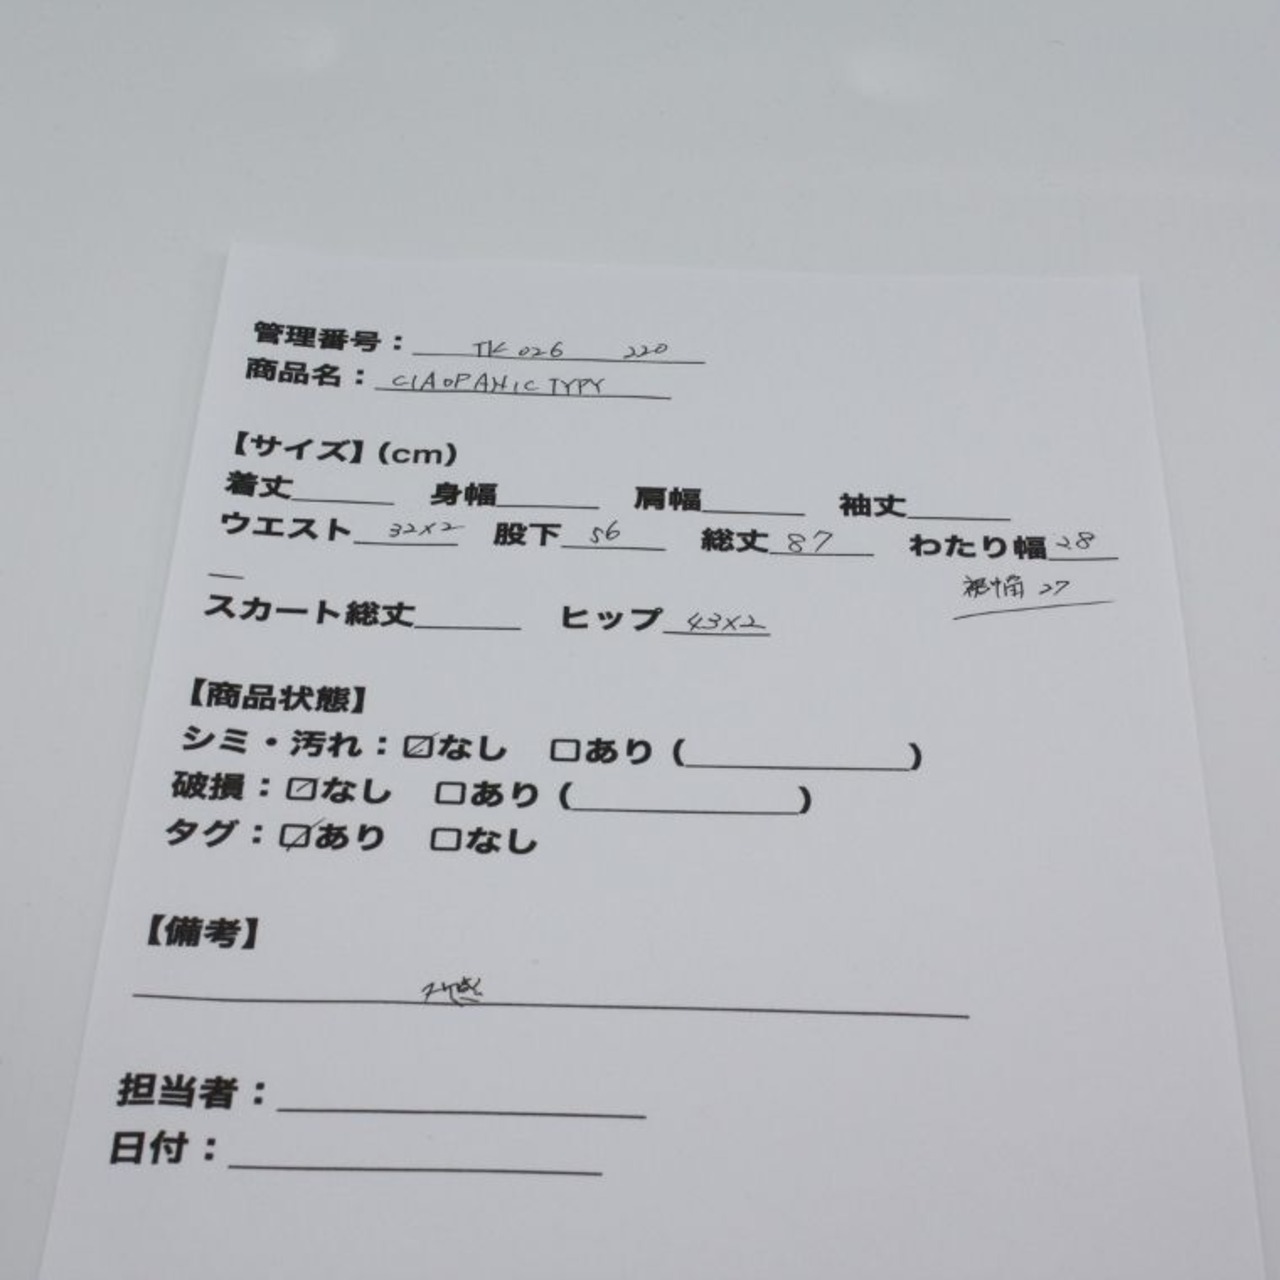 管理番号： TK026 220
商品名： CIAOPANIC TYPY
【サイズ】（cm）
着丈______ 身幅______ 肩幅______ 袖丈______
ウエスト 32×2 股下 56 総丈 87 わたり幅 28
裾幅 27
スカート総丈______ ヒップ 43×2
【商品状態】
シミ・汚れ：☑なし □あり（____________）
破損：☑なし □あり（____________）
タグ：☑あり □なし
【備考】
担当者：____________________
日付：____________________